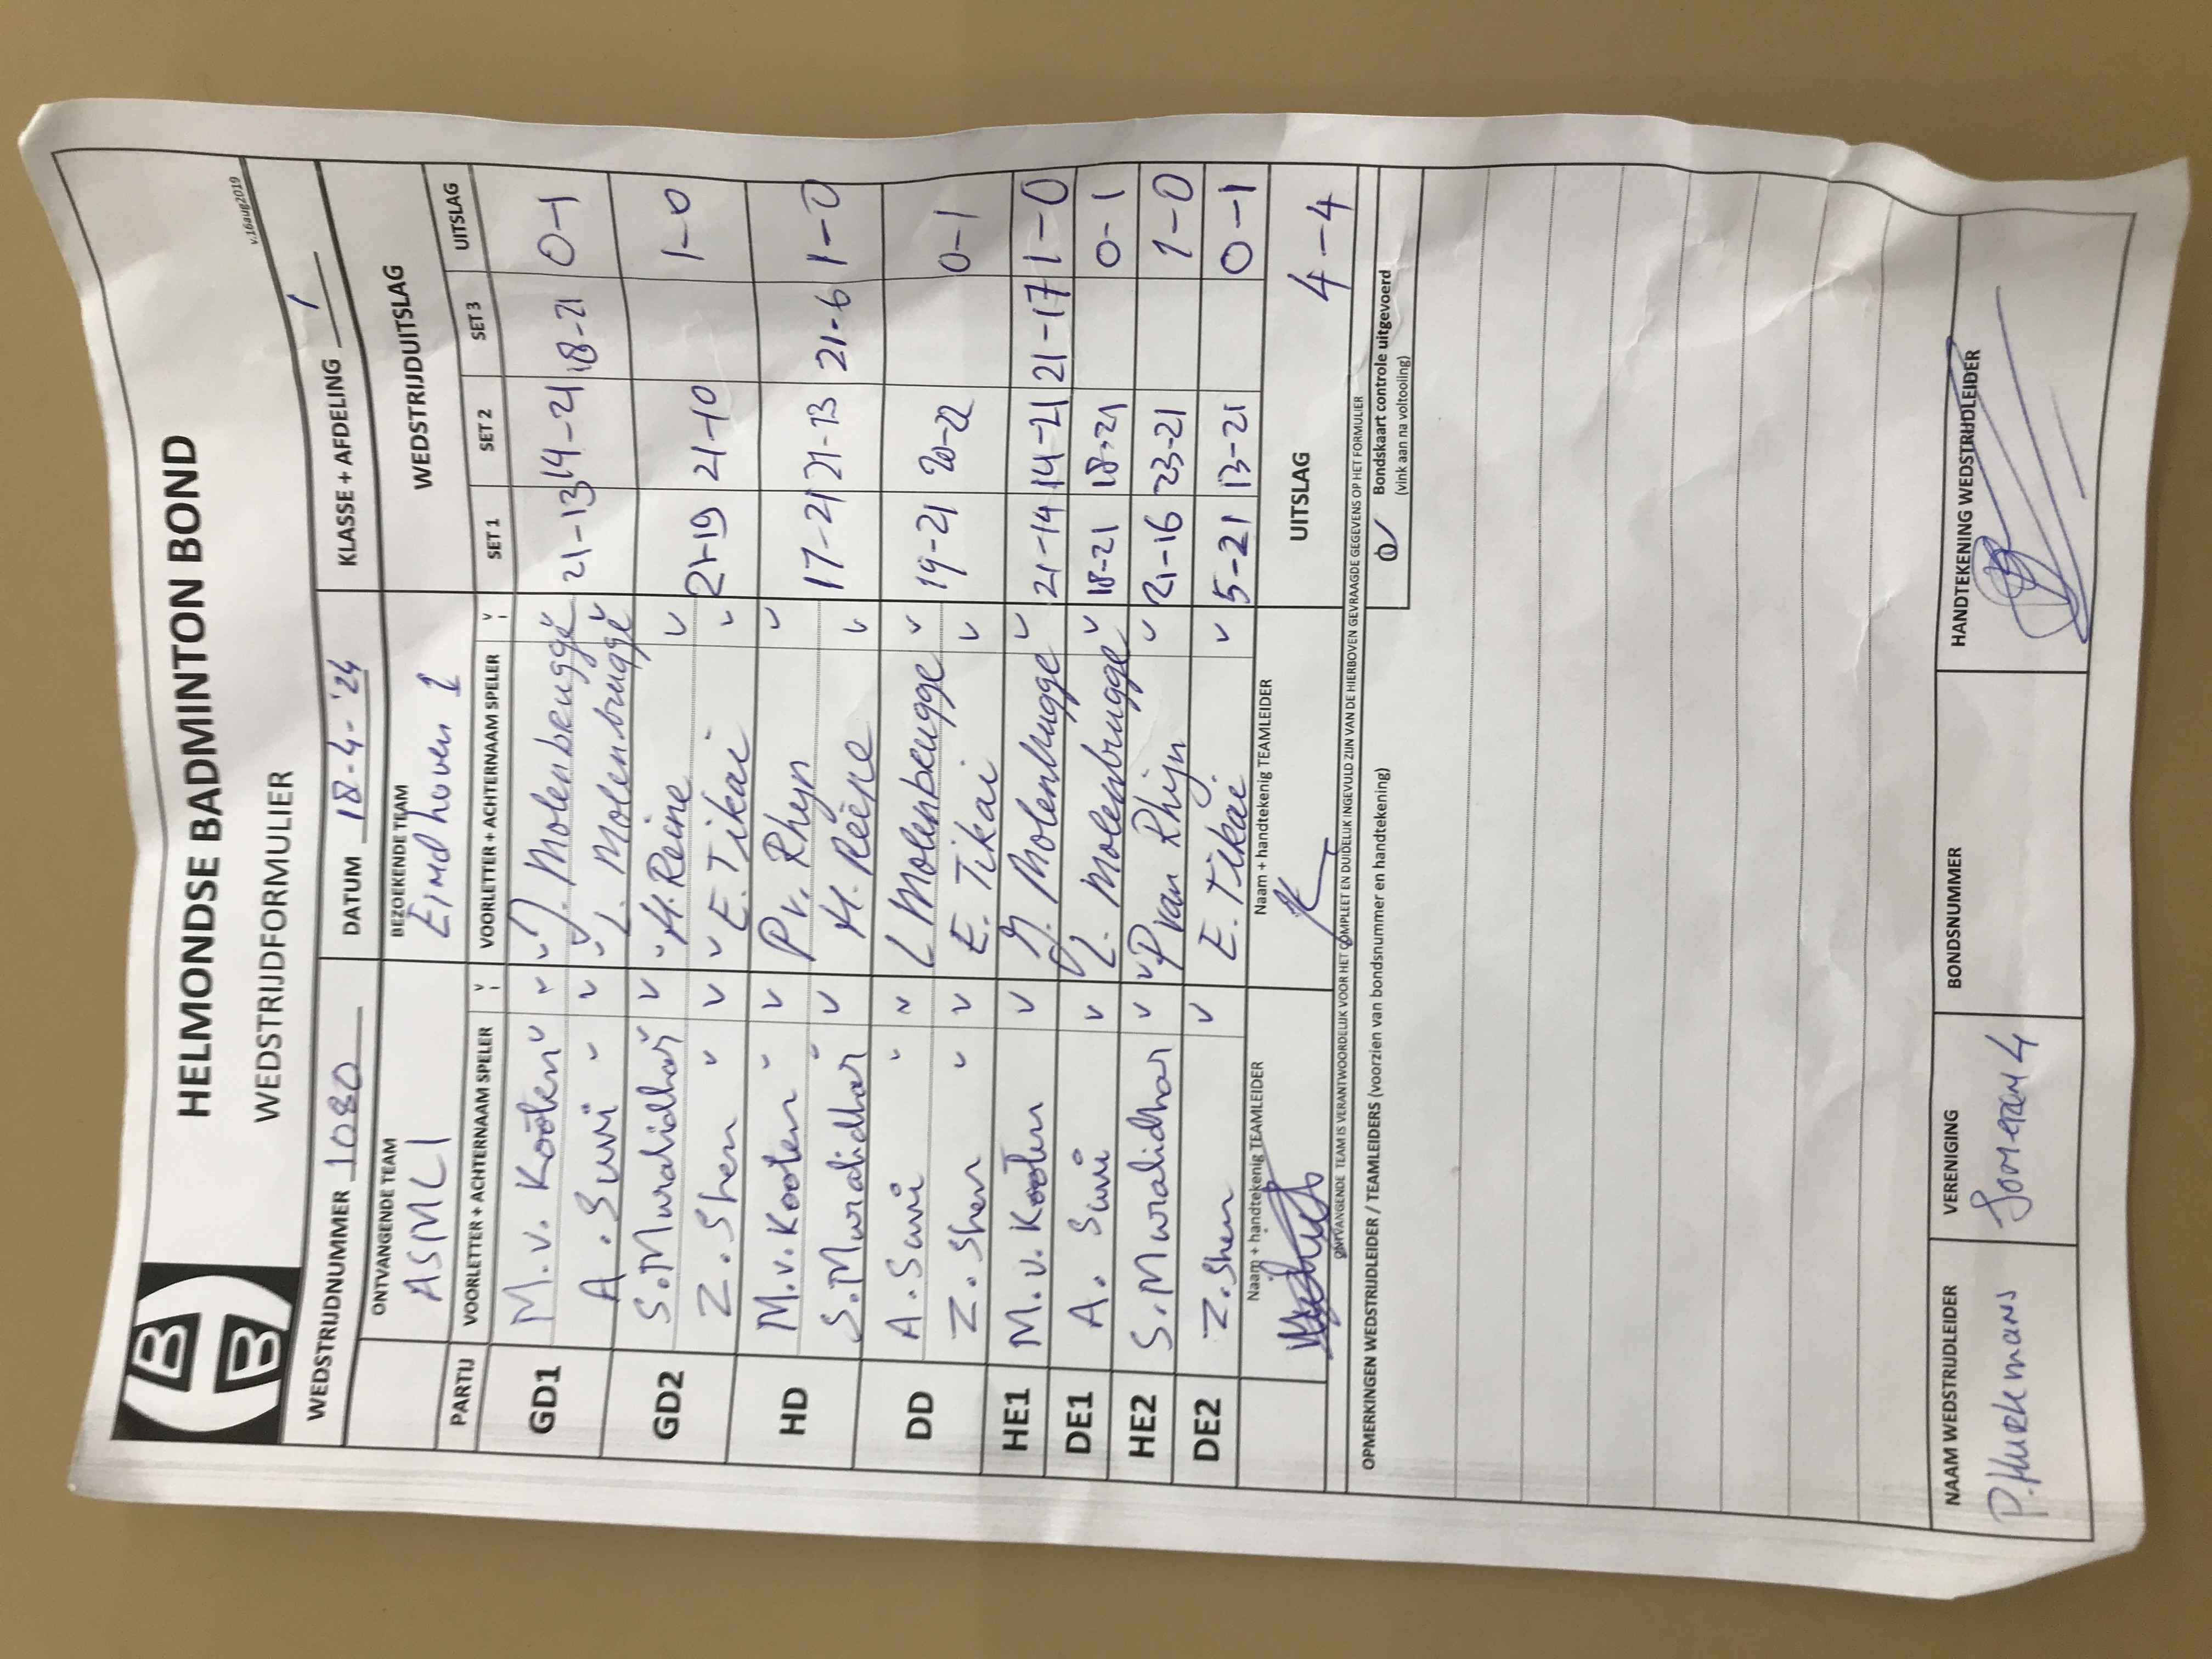 HELMONDSE BADMINTON BOND
WEDSTRIJDFORMULIER
v.16aug2019
WEDSTRIJDNUMMER 1080 DATUM 18-4-'24 KLASSE + AFDELING 1
ONTVANGENDE TEAM BEZOEKENDE TEAM WEDSTRIJDUITSLAG
ASML 1 Eindhoven 1
PARTIJ VOORLETTER + ACHTERNAAM SPELER V VOORLETTER + ACHTERNAAM SPELER V SET 1 SET 2 SET 3 UITSLAG
GD1 M. v. Kooten v v J. Molenbrugge v 21-13 14-21 18-21 0-1
A. Suvi v v L. Molenbrugge v
GD2 S. Muralidhar v v M. Reine v 21-19 21-10 1-0
Z. Shen v v E. Tikai v
HD M. v. Kooten v v P v. Rhyn v 17-21 21-13 21-6 1-0
S. Muralidhar v v M. Reine v
DD A. Suvi v v L Molenbrugge v 19-21 20-22 0-1
Z. Shen v v E. Tikai v
HE1 M. v. Kooten v J. Molenbrugge v 21-14 14-21 21-17 1-0
DE1 A. Suvi v L. Molenbrugge v 18-21 18-21 0-1
HE2 S. Muralidhar v P van Rhijn v 21-16 23-21 1-0
DE2 Z. Shen v E. Tikai v 5-21 13-21 0-1
Naam + handtekenig TEAMLEIDER Naam + handtekenig TEAMLEIDER UITSLAG 4-4
ONTVANGENDE TEAM IS VERANTWOORDELIJK VOOR HET COMPLEET EN DUIDELIJK INGEVULD ZIJN VAN DE HIERBOVEN GEVRAAGDE GEGEVENS OP HET FORMULIER
OPMERKINGEN WEDSTRIJDLEIDER / TEAMLEIDERS (voorzien van bondsnummer en handtekening)
Bondskaart controle uitgevoerd
(vink aan na voltooiing)
NAAM WEDSTRIJDLEIDER VERENIGING BONDSNUMMER HANDTEKENING WEDSTRIJDLEIDER
P. Hurkmans Someren 4